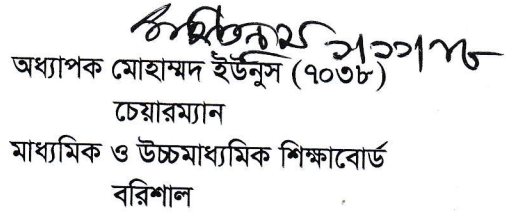 অধ্যাপক মোহাম্মদ ইউনুস (৭০৩৮)
চেয়ারম্যান
মাধ্যমিক ও উচ্চমাধ্যমিক শিক্ষাবোর্ড
বরিশাল